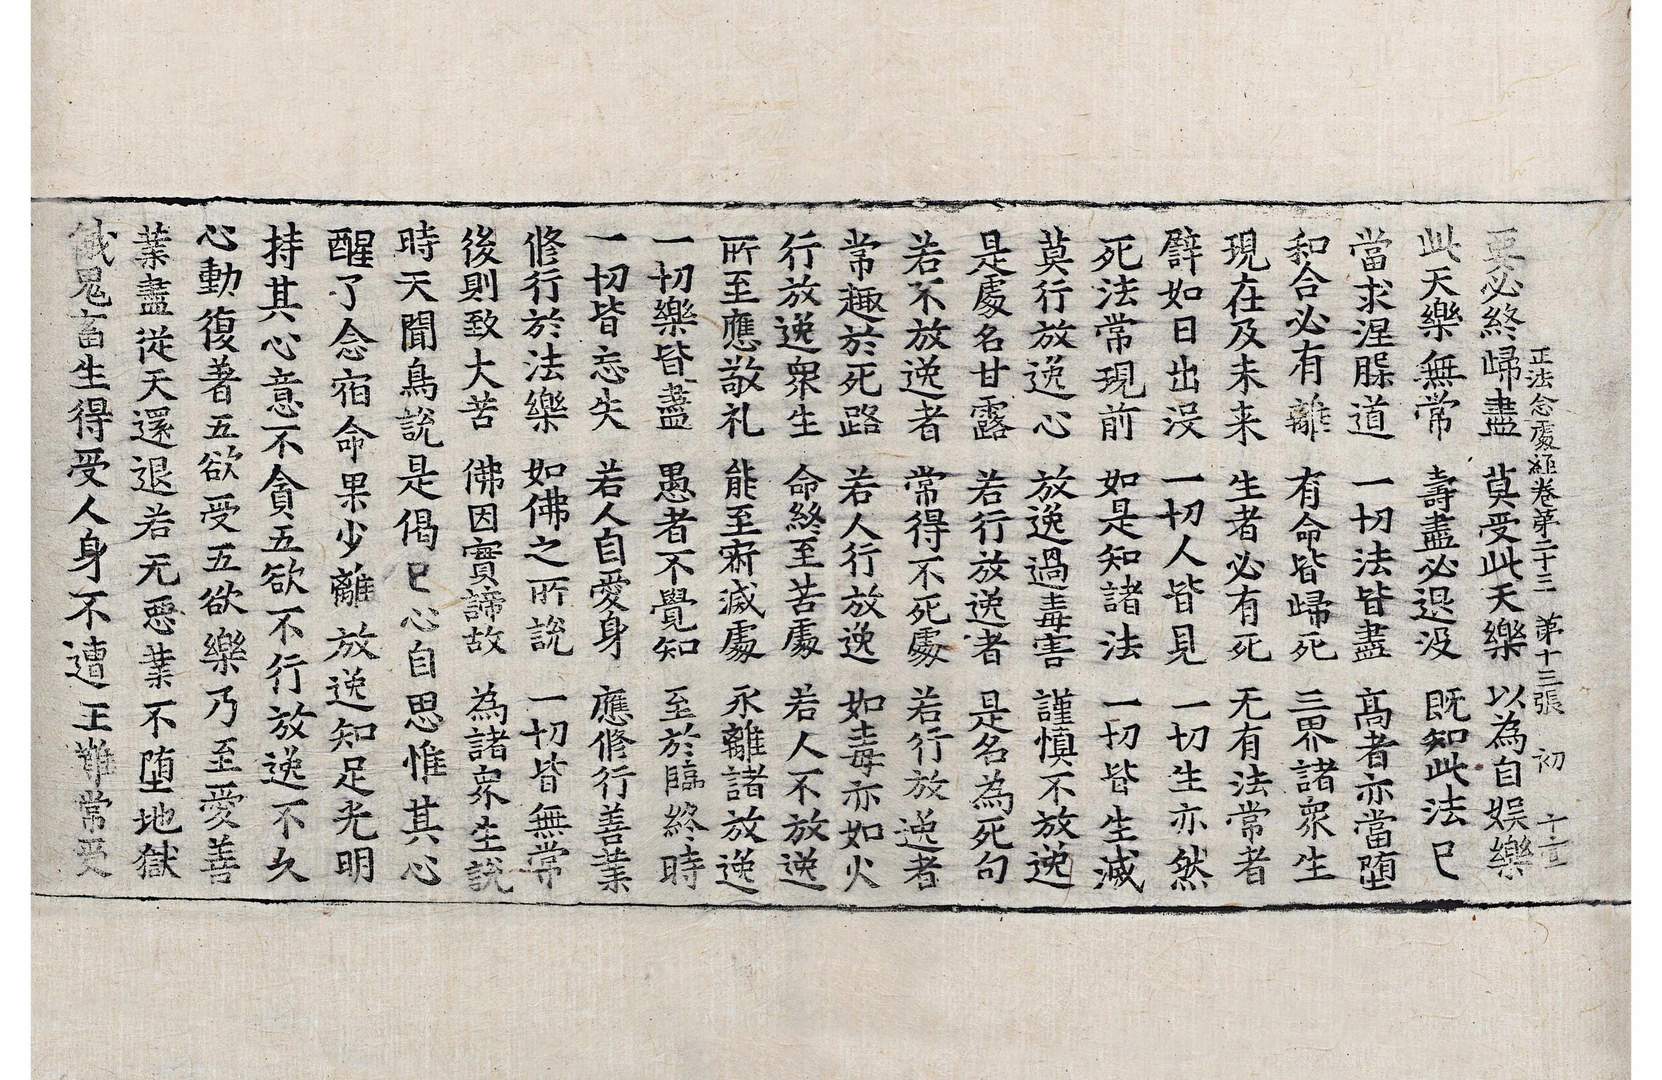 正法念處經卷第二十三 第十三張 初 十
要必終歸盡 莫受此天樂 以為自娛樂
此天樂無常 壽盡必退没 既知此法已
當求涅槃道 一切法皆盡 髙者亦當堕
和合必有離 有命皆歸死 三界諸衆生
現在及未来 生者必有死 无有法常者
譬如日出没 一切人皆見 一切生亦然
死法常現前 如是知諸法 一切皆生滅
莫行放逸心 放逸過毒害 謹慎不放逸
是處名甘露 若行放逸者 是名為死句
若不放逸者 常得不死處 若行放逸者
常趣於死路 若人行放逸 如毒亦如火
行放逸衆生 命終至苦處 若人不放逸
所至應敬礼 能至寂滅處 永離諸放逸
一切樂皆盡 愚者不覺知 至於臨終時
一切皆忘失 若人自愛身 應修行善業
修行於法樂 如佛之所說 一切皆無常
後則致大苦 佛因實諦故 為諸衆生說
時天聞鳥說是偈已心自思惟其心
醒了念宿命果少離放逸知足光明
持其心意不貪五欲不行放逸不久
心動復著五欲受五欲樂乃至愛善
業盡從天還退若无惡業不堕地獄
餓鬼畜生得受人身不遭王難常受